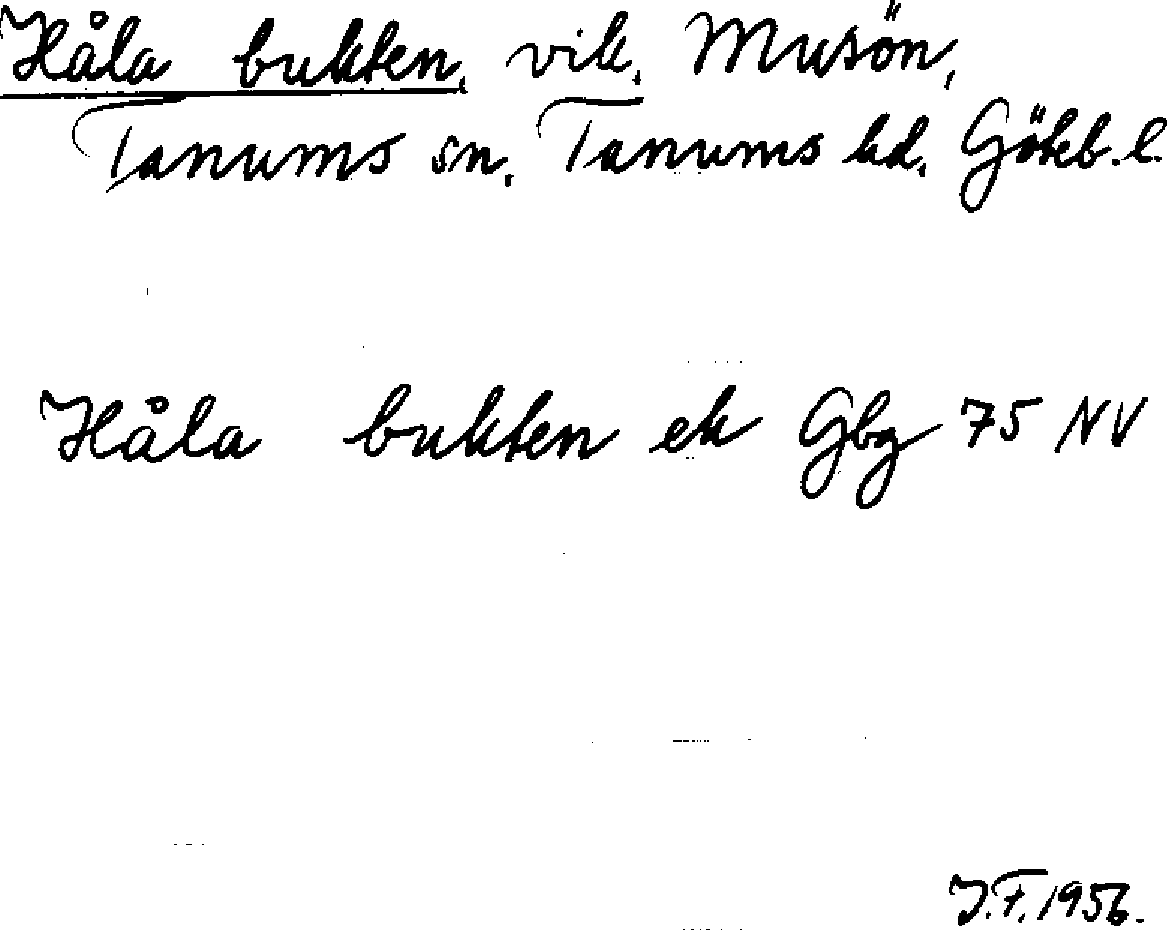 Håla bukten, vik, Musön,
Tanums sn, Tanums hd, Göteb. l.
Håla bukten ek Gbg 75 NV
J.F. 1956.